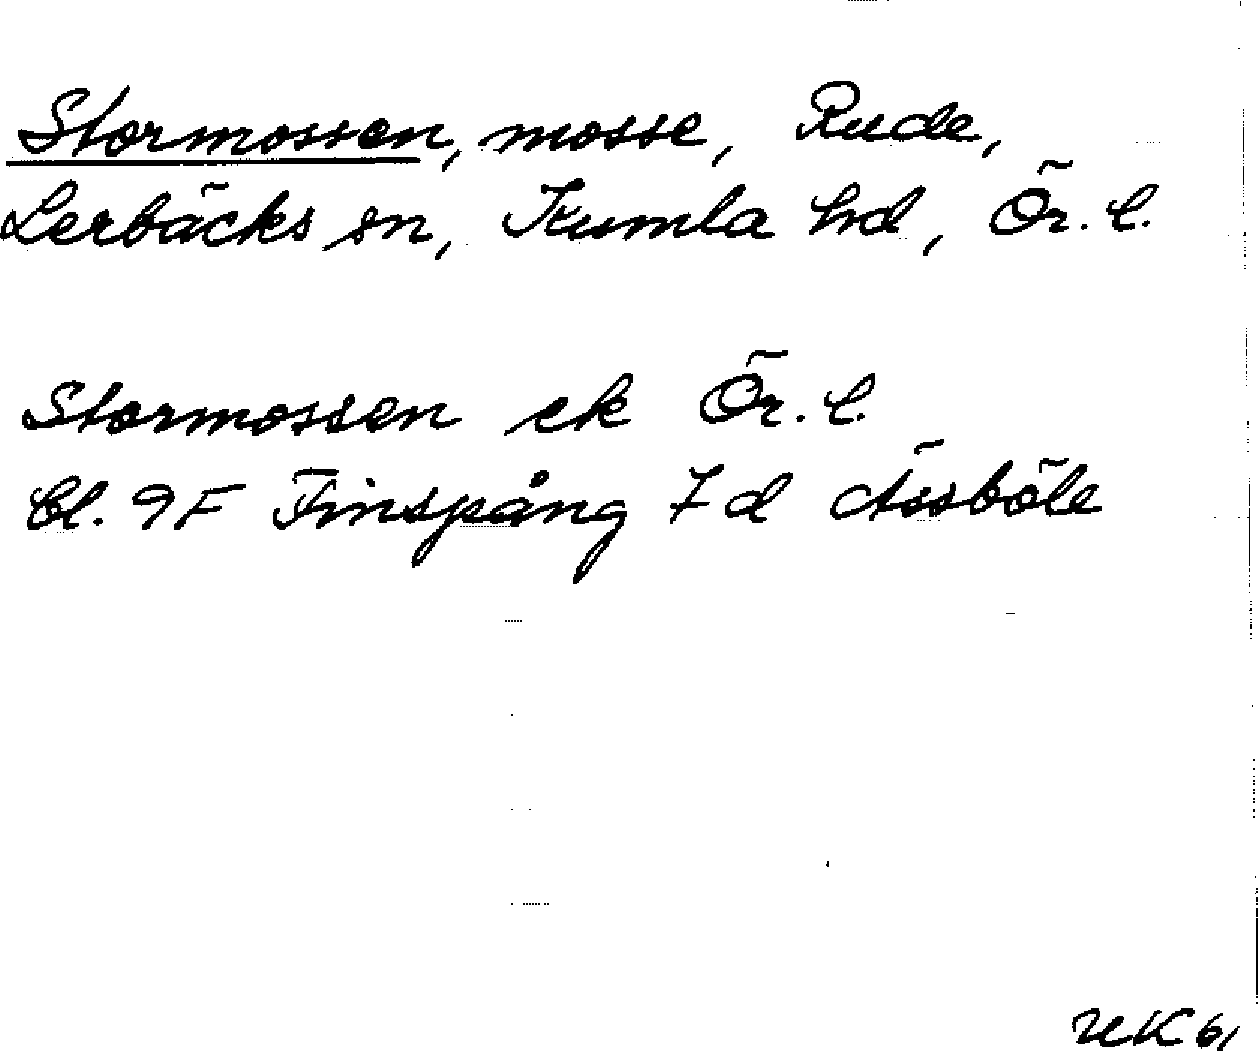 Stormossen, mosse, Rude,
Lerbäcks sn, Kumla hd, Ör. l.
Stormossen ek Ör. l.
Bl. 9F Finspång 7d Åssböle
UK 61